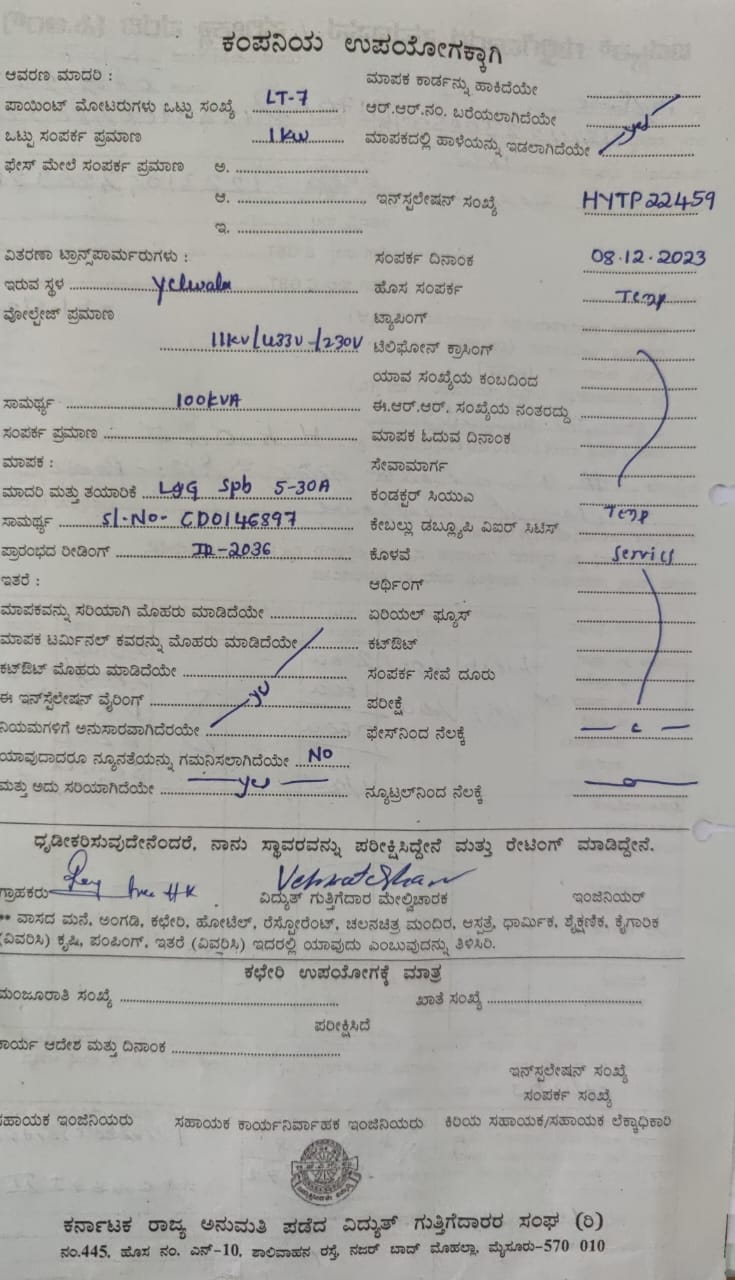 ಕಂಪನಿಯ ಉಪಯೋಗಕ್ಕಾಗಿ
ಆವರಣ ಮಾದರಿ :
ಮಾಪಕ ಕಾರ್ಡನ್ನು ಹಾಕಿದೆಯೇ
ಪಾಯಿಂಟ್ ಮೋಟರುಗಳು ಒಟ್ಟು ಸಂಖ್ಯೆ LT-7
ಆರ್.ಆರ್.ನಂ. ಬರೆಯಲಾಗಿದೆಯೇ
ಒಟ್ಟು ಸಂಪರ್ಕ ಪ್ರಮಾಣ 1 kw
ಮಾಪಕದಲ್ಲಿ ಹಾಳೆಯನ್ನು ಇಡಲಾಗಿದೆಯೇ yes
ಫೇಸ್ ಮೇಲೆ ಸಂಪರ್ಕ ಪ್ರಮಾಣ ಅ.
ಆ.
ಇನ್‌ಸ್ಟಲೇಷನ್ ಸಂಖ್ಯೆ HYTP22459
ಇ.
ವಿತರಣಾ ಟ್ರಾನ್ಸ್‌ಪಾರ್ಮರುಗಳು :
ಸಂಪರ್ಕ ದಿನಾಂಕ 08.12.2023
ಇರುವ ಸ್ಥಳ Yelwala
ಹೊಸ ಸಂಪರ್ಕ Temp
ವೋಲ್ಟೇಜ್ ಪ್ರಮಾಣ
ಟ್ಯಾಪಿಂಗ್
11kv/433v-/230V
ಟೆಲಿಫೋನ್ ಕ್ರಾಸಿಂಗ್
ಯಾವ ಸಂಖ್ಯೆಯ ಕಂಬದಿಂದ
ಸಾಮರ್ಥ್ಯ 100kVA
ಈ.ಆರ್.ಆರ್. ಸಂಖ್ಯೆಯ ನಂತರದ್ದು
ಸಂಪರ್ಕ ಪ್ರಮಾಣ
ಮಾಪಕ ಓದುವ ದಿನಾಂಕ
ಮಾಪಕ :
ಸೇವಾಮಾರ್ಗ
ಮಾದರಿ ಮತ್ತು ತಯಾರಿಕೆ L&G Spb 5-30A
ಕಂಡಕ್ಟರ್ ಸಿಯುಎ
ಸಾಮರ್ಥ್ಯ Sl.No- CD0146897
ಕೇಬಲ್ಲು ಡಬ್ಲ್ಯೂಪಿ ವಿಐರ್ ಸಿಟಿಸ್ Temp
ಪ್ರಾರಂಭದ ರೀಡಿಂಗ್ IR-2036
ಕೊಳವೆ Service
ಇತರೆ :
ಆರ್ಥಿಂಗ್
ಮಾಪಕವನ್ನು ಸರಿಯಾಗಿ ಮೊಹರು ಮಾಡಿದೆಯೇ
ಏರಿಯಲ್ ಫ್ಯೂಸ್
ಮಾಪಕ ಟರ್ಮಿನಲ್ ಕವರನ್ನು ಮೊಹರು ಮಾಡಿದೆಯೇ
ಕಟ್‌ಔಟ್
ಕಟ್‌ಔಟ್ ಮೊಹರು ಮಾಡಿದೆಯೇ
ಸಂಪರ್ಕ ಸೇವೆ ದೂರು
ಈ ಇನ್‌ಸ್ಟೆಲೇಷನ್ ವೈರಿಂಗ್ yes
ಪರೀಕ್ಷೆ
ನಿಯಮಗಳಿಗೆ ಅನುಸಾರವಾಗಿದೆರಯೇ
ಫೇಸ್‌ನಿಂದ ನೆಲಕ್ಕೆ
ಯಾವುದಾದರೂ ನ್ಯೂನತೆಯನ್ನು ಗಮನಿಸಲಾಗಿದೆಯೇ No
ಮತ್ತು ಅದು ಸರಿಯಾಗಿದೆಯೇ yes
ನ್ಯೂಟ್ರಲ್‌ನಿಂದ ನೆಲಕ್ಕೆ
ಧೃಡೀಕರಿಸುವುದೇನೆಂದರೆ, ನಾನು ಸ್ಥಾವರವನ್ನು ಪರೀಕ್ಷಿಸಿದ್ದೇನೆ ಮತ್ತು ರೇಟಿಂಗ್ ಮಾಡಿದ್ದೇನೆ.
ಗ್ರಾಹಕರು
ವಿದ್ಯುತ್ ಗುತ್ತಿಗೆದಾರ ಮೇಲ್ವಿಚಾರಕ
ಇಂಜಿನಿಯರ್
** ವಾಸದ ಮನೆ, ಅಂಗಡಿ, ಕಛೇರಿ, ಹೋಟೆಲ್, ರೆಸ್ಟೋರೆಂಟ್, ಚಲನಚಿತ್ರ ಮಂದಿರ, ಆಸ್ಪತ್ರೆ, ಧಾರ್ಮಿಕ, ಶೈಕ್ಷಣಿಕ, ಕೈಗಾರಿಕ
(ವಿವರಿಸಿ) ಕೃಷಿ, ಪಂಪಿಂಗ್, ಇತರೆ (ವಿವರಿಸಿ) ಇದರಲ್ಲಿ ಯಾವುದು ಎಂಬುವುದನ್ನು ತಿಳಿಸಿರಿ.
ಕಛೇರಿ ಉಪಯೋಗಕ್ಕೆ ಮಾತ್ರ
ಮಂಜೂರಾತಿ ಸಂಖ್ಯೆ
ಖಾತೆ ಸಂಖ್ಯೆ
ಪರೀಕ್ಷಿಸಿದೆ
ಕಾರ್ಯ ಆದೇಶ ಮತ್ತು ದಿನಾಂಕ
ಇನ್‌ಸ್ಟಲೇಷನ್ ಸಂಖ್ಯೆ
ಸಂಪರ್ಕ ಸಂಖ್ಯೆ
ಸಹಾಯಕ ಇಂಜಿನಿಯರು
ಸಹಾಯಕ ಕಾರ್ಯನಿರ್ವಾಹಕ ಇಂಜಿನಿಯರು
ಕಿರಿಯ ಸಹಾಯಕ/ಸಹಾಯಕ ಲೆಕ್ಕಾಧಿಕಾರಿ
ಕರ್ನಾಟಕ ರಾಜ್ಯ ಅನುಮತಿ ಪಡೆದ ವಿದ್ಯುತ್ ಗುತ್ತಿಗೆದಾರರ ಸಂಘ (ರಿ)
ನಂ.445, ಹೊಸ ನಂ. ಎನ್-10, ಶಾಲಿವಾಹನ ರಸ್ತೆ, ನಜರ್ ಬಾದ್ ಮೊಹಲ್ಲಾ, ಮೈಸೂರು-570 010